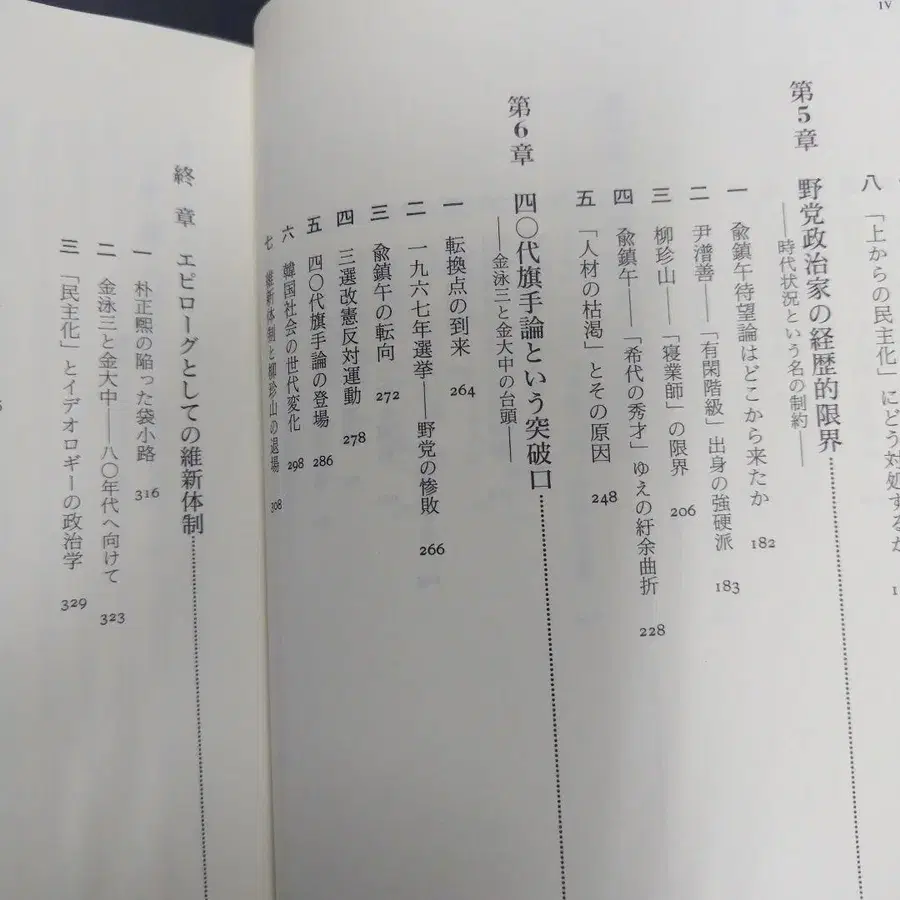 iv
八 「上からの民主化」にどう対処するか
第5章 野党政治家の経歴的限界
――時代状況という名の制約――
一 兪鎮午待望論はどこから来たか 182
二 尹潽善――「有閑階級」出身の強硬派 183
三 柳珍山――「寝業師」の限界 206
四 兪鎮午――「希代の秀才」ゆえの紆余曲折 228
五 「人材の枯渇」とその原因 248
第6章 四〇代旗手論という突破口
――金泳三と金大中の台頭――
一 転換点の到来 264
二 一九六七年選挙――野党の惨敗 266
三 兪鎮午の転向 272
四 三選改憲反対運動 278
五 四〇代旗手論の登場 286
六 韓国社会の世代変化 298
七 維新体制と柳珍山の退場 308
終章 エピローグとしての維新体制
一 朴正熙の陥った袋小路 316
二 金泳三と金大中――八〇年代へ向けて 323
三 「民主化」とイデオロギーの政治学 329